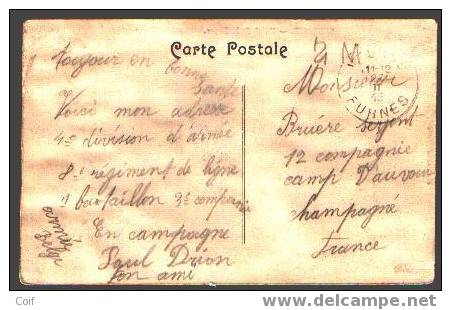 Carte Postale
S. M.
toujour en
bonne
Santé
Voici mon adresse
4e division d'armée
8e régiment de ligne
1 bataillon 3e compagnie
En campagne
Paul Drion
ton ami
Monsieur
Bruére sergent
12 compagnie
camp D'auvour
champagné
France
11-12
II
FURNES
Coif
www.delcampe.net